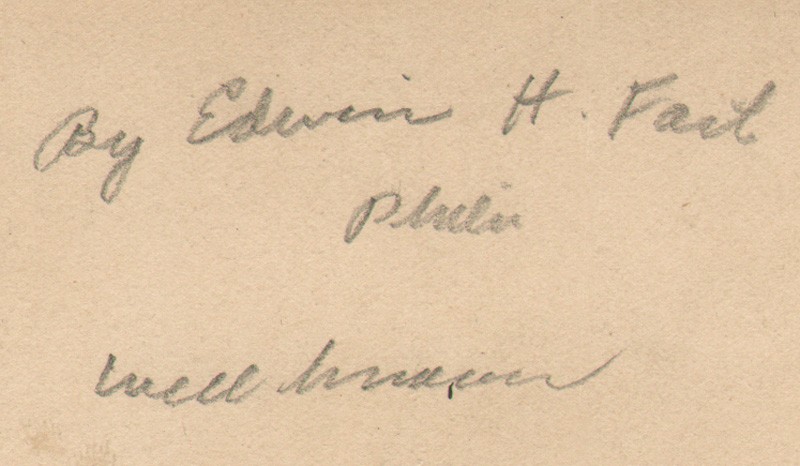 By Edwin H. Fait
Phila
well known